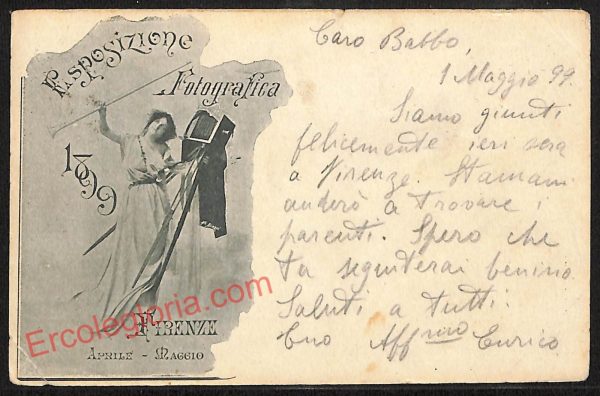 Esposizione
Fotografica
1899
Firenze
Aprile - Maggio
Ercolegloria.com
Caro Babbo,
1 Maggio 99.
Siamo giunti
felicemente ieri sera
a Firenze. Stamani
anderò a trovare i
parenti. Spero che
tu seguiterai benino.
Saluti a tutti.
Tuo Affmo Enrico